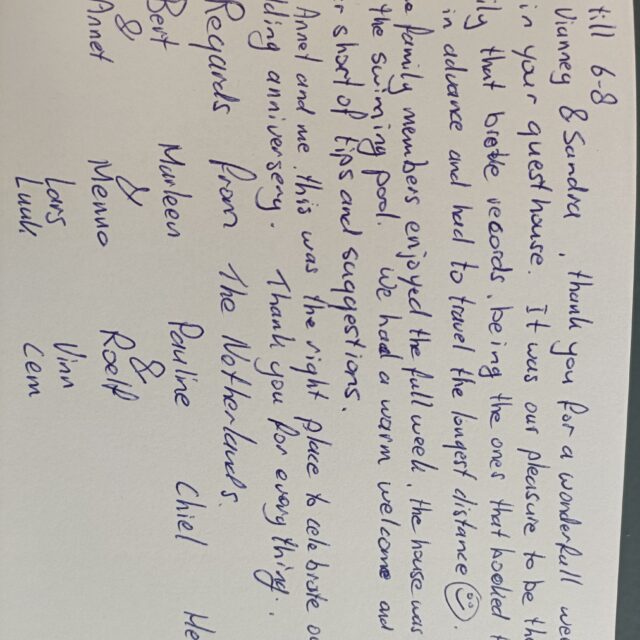 till 6-8
Vianney & Sandra, thank you for a wonderfull we
in your guesthouse. It was our pleasure to be th
ily that broke records, being the ones that booked
in advance and had to travel the longest distance ☺.
family members enjoyed the full week, the house was
the swiming pool. We had a warm welcome and
short of tips and suggestions.
Annet and me this was the right place to celebrate ou
dding anniversery. Thank you for everything..
Regards from The Netherlands.
Bert Marleen Pauline Chiel He
& & &
Annet Menno Roelf
Lars Vinn
Luuk Cem